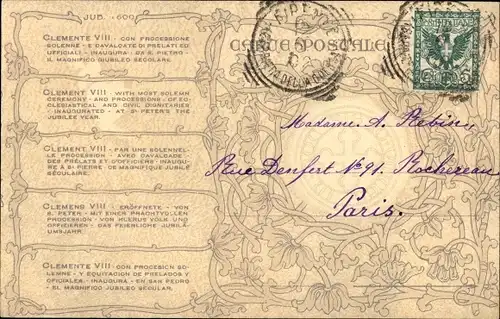 JUB. 1600
CARTE POSTALE
FIRENZE
CLEMENTE VIII - CON PROCESSIONE
SOLENNE - E CAVALCATE DI PRELATI ED
UFFICIALI - INAUGURA - DA S. PIETRO -
IL MAGNIFICO GIUBILEO SECOLARE.
CLEMENT VIII - WITH MOST SOLEMN
CEREMONY - AND PROCESSIONS - OF EC-
CLESIASTICAL AND CIVIL DIGNITARIES
- INAUGURATED - AT ST PETER'S THE
JUBILEE YEAR.
CLEMENT VIII - PAR UNE SOLENNEL-
LE PROCESSION - AVEC CAVALCADE -
DES PRÉLATS ET D'OFFICIERS - INAUGU-
RE À ST PIERRE, CE MAGNIFIQUE JUBILÉ
SÉCULAIRE.
CLEMENS VIII - ERÖFFNETE - VON
S. PETER - MIT EINER PRACHTVOLLEN
PROCESSION - VON KLERUS VOLK UND
OFFICIEREN - DAS FEIERLICHE JUBILÄ-
UMSJAHR.
CLEMENTE VIII - CON PROCESICN SO-
LEMNE - Y EQUIVACION DE PRELADOS Y
OFICIALES - INAUGURA - EN SAN PEDRO
- EL MAGNIFICO JUBILEO SECULAR.
Madame A. Rebin
Rue Denfert No 91. Rochereau
Paris.